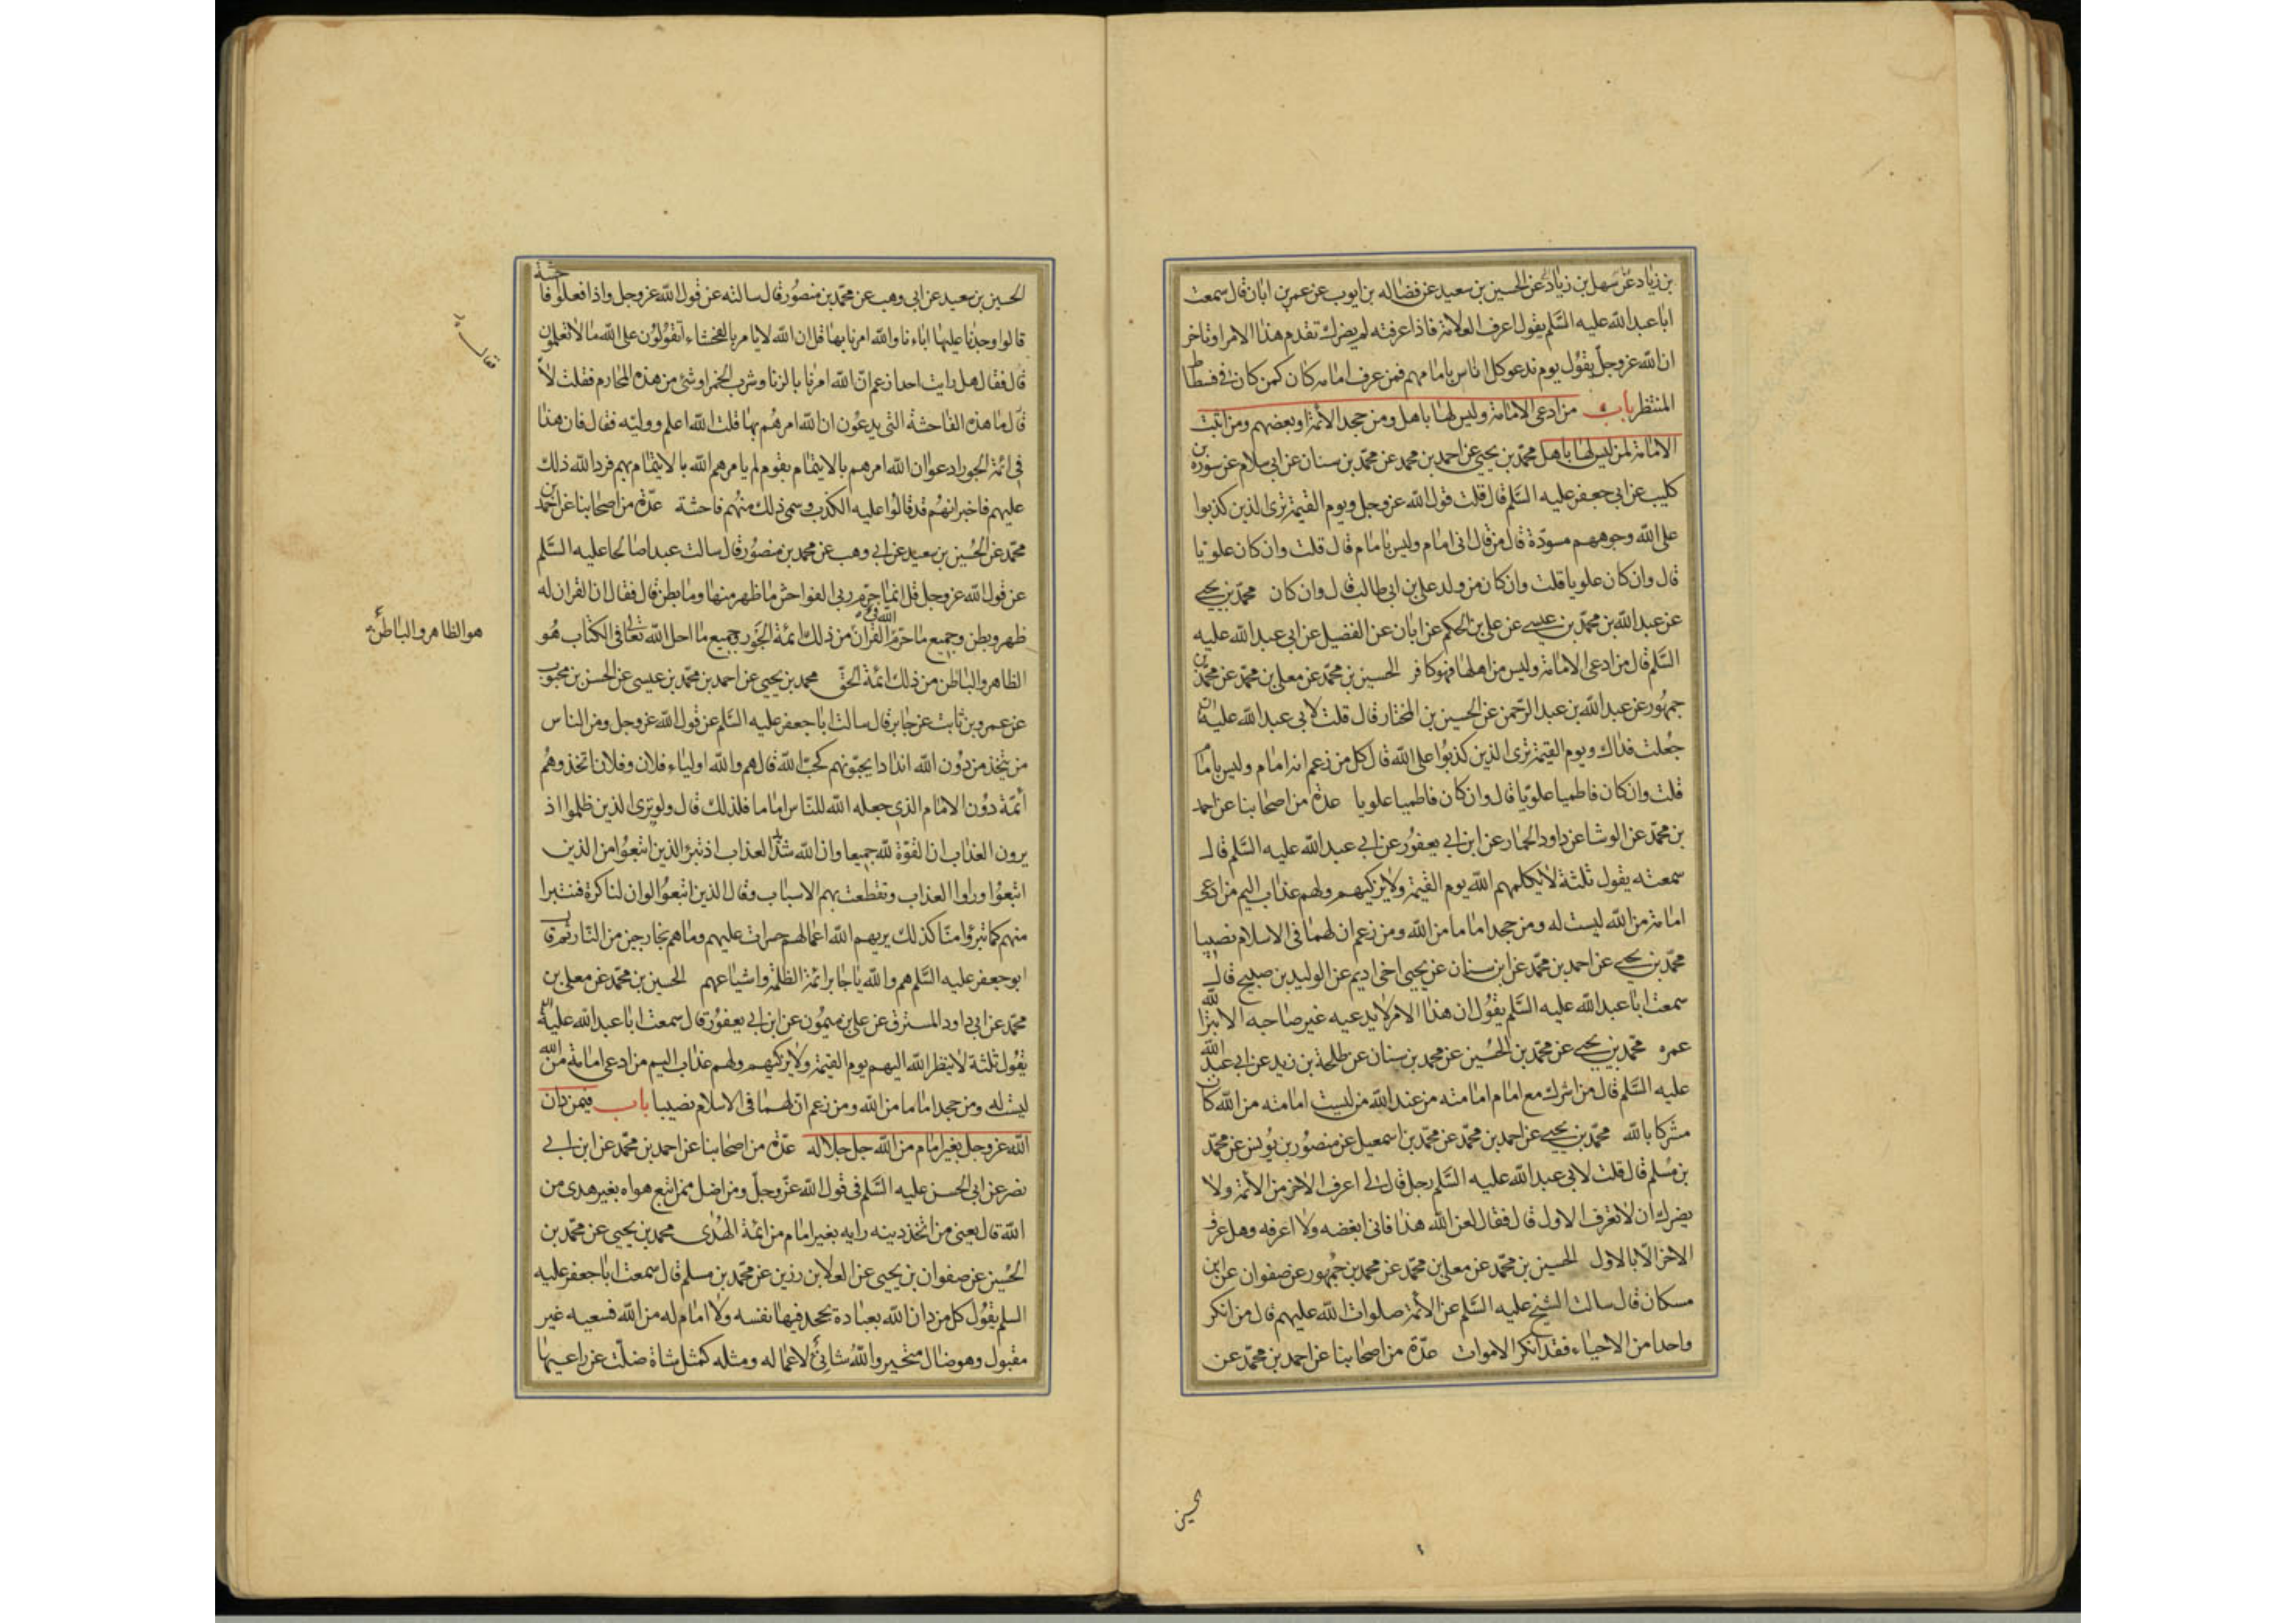 بن زياد عن سهل بن زياد عن الحسين بن سعيد عن فضاله بن ايوب عن عمر بن ابان قال سمعت
ابا عبد الله عليه السلم يقول اعرف العلامة فاذا عرفته لم يضرك تقدم هذا الامر او تاخر
ان الله عز وجل يقول يوم ندعو كل اناس بامامهم فمن عرف امامه كان كمن كان في فسطاط
المنتظر باب من ادعى الامامة وليس لها باهل ومن جحد الأئمة او بعضهم ومن اثبت
الامامة لمن ليس لها باهل محمد بن يحيى عن احمد بن محمد عن محمد بن سنان عن ابى سلام عن سورة بن
كليب عن ابى جعفر عليه السلم قال قلت قول الله عز وجل ويوم القيمة ترى الذين كذبوا
على الله وجوههم مسودة قال من قال انى امام وليس بامام قال قلت وان كان علويا
قال وان كان علويا قلت وان كان من ولد على بن ابى طالب قال وان كان محمد بن يحيى
عن عبد الله بن محمد بن عيسى عن على بن الحكم عن ابان عن الفضيل عن ابى عبد الله عليه
السلم قال من ادعى الامامة وليس من اهلها فهو كافر الحسين بن محمد عن معلى بن محمد عن محمد بن
جمهور عن عبد الله بن عبد الرحمن عن الحسين بن المختار قال قلت لابى عبد الله عليه
جعلت فداك ويوم القيمة ترى الذين كذبوا على الله قال كل من زعم انه امام وليس بامام
قلت وان كان فاطميا علويا قال وان كان فاطميا علويا عدة من اصحابنا عن احمد
بن محمد عن الوشا عن داود الحمار عن ابن ابى يعفور عن ابى عبد الله عليه السلم قال
سمعته يقول ثلثة لا يكلمهم الله يوم القيمة ولا يزكيهم ولهم عذاب اليم من ادعى
امامة من الله ليست له ومن جحد اماما من الله ومن زعم ان لهما فى الاسلام نصيبا
محمد بن يحيى عن احمد بن محمد عن ابن سنان عن يحيى اخى اديم عن الوليد بن صبيح قال
سمعت ابا عبد الله عليه السلم يقول ان هذا الامر لا يدعيه غير صاحبه الا بتر الله
عمره محمد بن يحيى عن محمد بن الحسين عن محمد بن سنان عن طلحة بن زيد عن ابى عبد الله
عليه السلم قال من اشرك مع امام امامته من عند الله من ليست امامته من الله كان
مشركا بالله محمد بن يحيى عن احمد بن محمد عن محمد بن اسمعيل عن منصور بن يونس عن محمد
بن مسلم قال قلت لابى عبد الله عليه السلم رجل قال لى اعرف الاخر من الأئمة ولا
يضرك ان لا تعرف الاول قال فقال لعن الله هذا فانى ابغضه ولا اعرفه وهل عرف
الاخر الا بالاول الحسين بن محمد عن معلى بن محمد عن محمد بن جمهور عن صفوان عن ابن
مسكان قال سالت الشيخ عليه السلم عن الأئمة صلوات الله عليهم قال من انكر
واحدا من الاحياء فقد انكر الاموات عدة من اصحابنا عن احمد بن محمد عن
الحسين
الحسين بن سعيد عن ابى وهب عن محمد بن منصور قال سالته عن قول الله عز وجل واذا فعلوا فاحشة
قالوا وجدنا عليها اباءنا والله امرنا بها قل ان الله لا يامر بالفحشاء اتقولون على الله ما لا تعلمون
قال فقال هل رايت احدا زعم ان الله امرنا بالزنا وشرب الخمر او شئ من هذه المحارم فقلت لا
قال ما هذه الفاحشة التى يدعون ان الله امرهم بها قلت الله اعلم ووليه فقال فان هذا
فى ائمة الجور ادعوا ان الله امرهم بالايتمام بقوم لم يامرهم الله بالايتمام بهم فرد الله ذلك
عليهم فاخبر انهم قد قالوا عليه الكذب وسمى ذلك منهم فاحشة عدة من اصحابنا عن احمد بن
محمد عن الحسين بن سعيد عن ابى وهب عن محمد بن منصور قال سالت عبدا صالحا عليه السلم
عن قول الله عز وجل قل انما حرم ربى الفواحش ما ظهر منها وما بطن قال فقال ان القران له
ظهر وبطن وجميع ما حرم الله فى القران من ذلك ائمة الجور وجميع ما احل الله تعالى فى الكتاب هو
هو الظاهر والباطن
الظاهر والباطن من ذلك ائمة الحق محمد بن يحيى عن احمد بن محمد بن عيسى عن الحسن بن محبوب
عن عمرو بن ثابت عن جابر قال سالت ابا جعفر عليه السلم عن قول الله عز وجل ومن الناس
من يتخذ من دون الله اندادا يحبونهم كحب الله قال هم والله اولياء فلان وفلان اتخذوهم
أئمة دون الامام الذى جعله الله للناس اماما فلذلك قال ولو ترى الذين ظلموا اذ
يرون العذاب ان القوة لله جميعا وان الله شديد العذاب اذ تبرء الذين اتبعوا من الذين
اتبعوا وراوا العذاب وتقطعت بهم الاسباب وقال الذين اتبعوا لو ان لنا كرة فنتبرا
منهم كما تبرؤا منا كذلك يريهم الله اعمالهم حسرات عليهم وما هم بخارجين من النار ثم قال
ابو جعفر عليه السلم هم والله يا جابر ائمة الظلمة واشياعهم الحسين بن محمد عن معلى بن
محمد عن ابى داود المسترق عن على بن ميمون عن ابن ابى يعفور قال سمعت ابا عبد الله عليه
يقول ثلثة لا ينظر الله اليهم يوم القيمة ولا يزكيهم ولهم عذاب اليم من ادعى امامة من الله
ليست له ومن جحد اماما من الله ومن زعم ان لهما فى الاسلام نصيبا باب فيمن دان
الله عز وجل بغير امام من الله جل جلاله عدة من اصحابنا عن احمد بن محمد عن ابن ابى
نصر عن ابى الحسن عليه السلم فى قول الله عز وجل ومن اضل ممن اتبع هواه بغير هدى من
الله قال يعنى من اتخذ دينه رايه بغير امام من ائمة الهدى محمد بن يحيى عن محمد بن
الحسين عن صفوان بن يحيى عن العلا بن رزين عن محمد بن مسلم قال سمعت ابا جعفر عليه
السلم يقول كل من دان الله بعبادة يجهد فيها نفسه ولا امام له من الله فسعيه غير
مقبول وهو ضال متحير والله شانئ لاعماله ومثله كمثل شاة ضلت عن راعيها